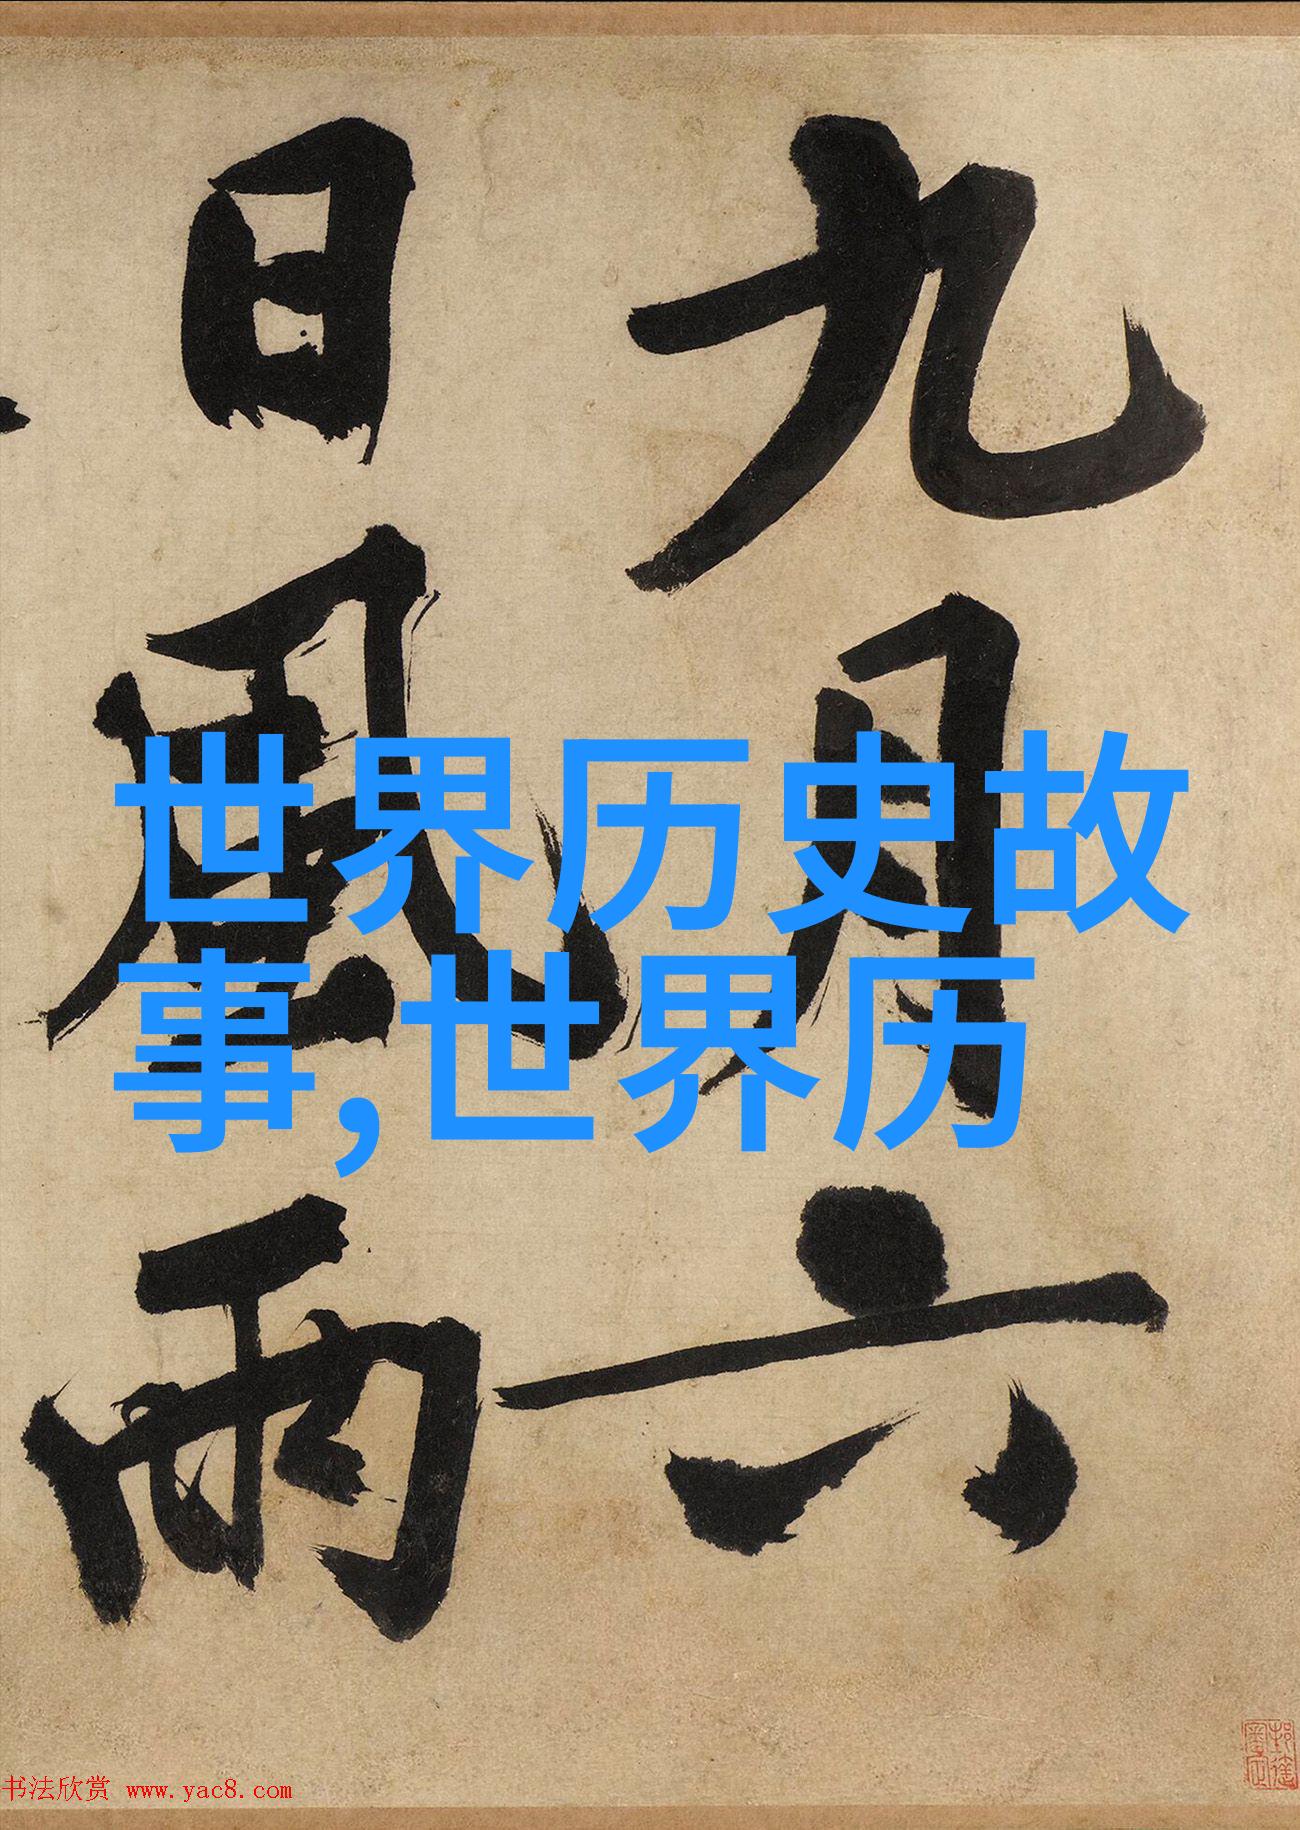 九月六
日风雨
世界历史故
事,世界历
书法欣赏 www.yac8.com